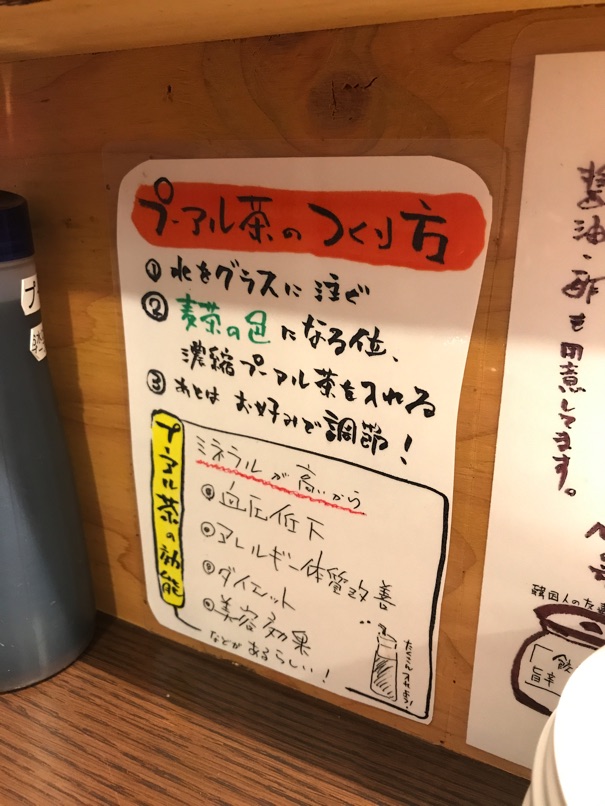 プーアル茶のつくり方
① 水をグラスに注ぐ
② 麦茶の色になる位、
濃縮プーアル茶を入れる
③ あとはお好みで調節!
プーアル茶の効能
ミネラルが高いから
血圧低下
アレルギー体質改善
ダイエット
美容効果
などがあるらしい!
醤油・酢も用意してます。
韓国人の